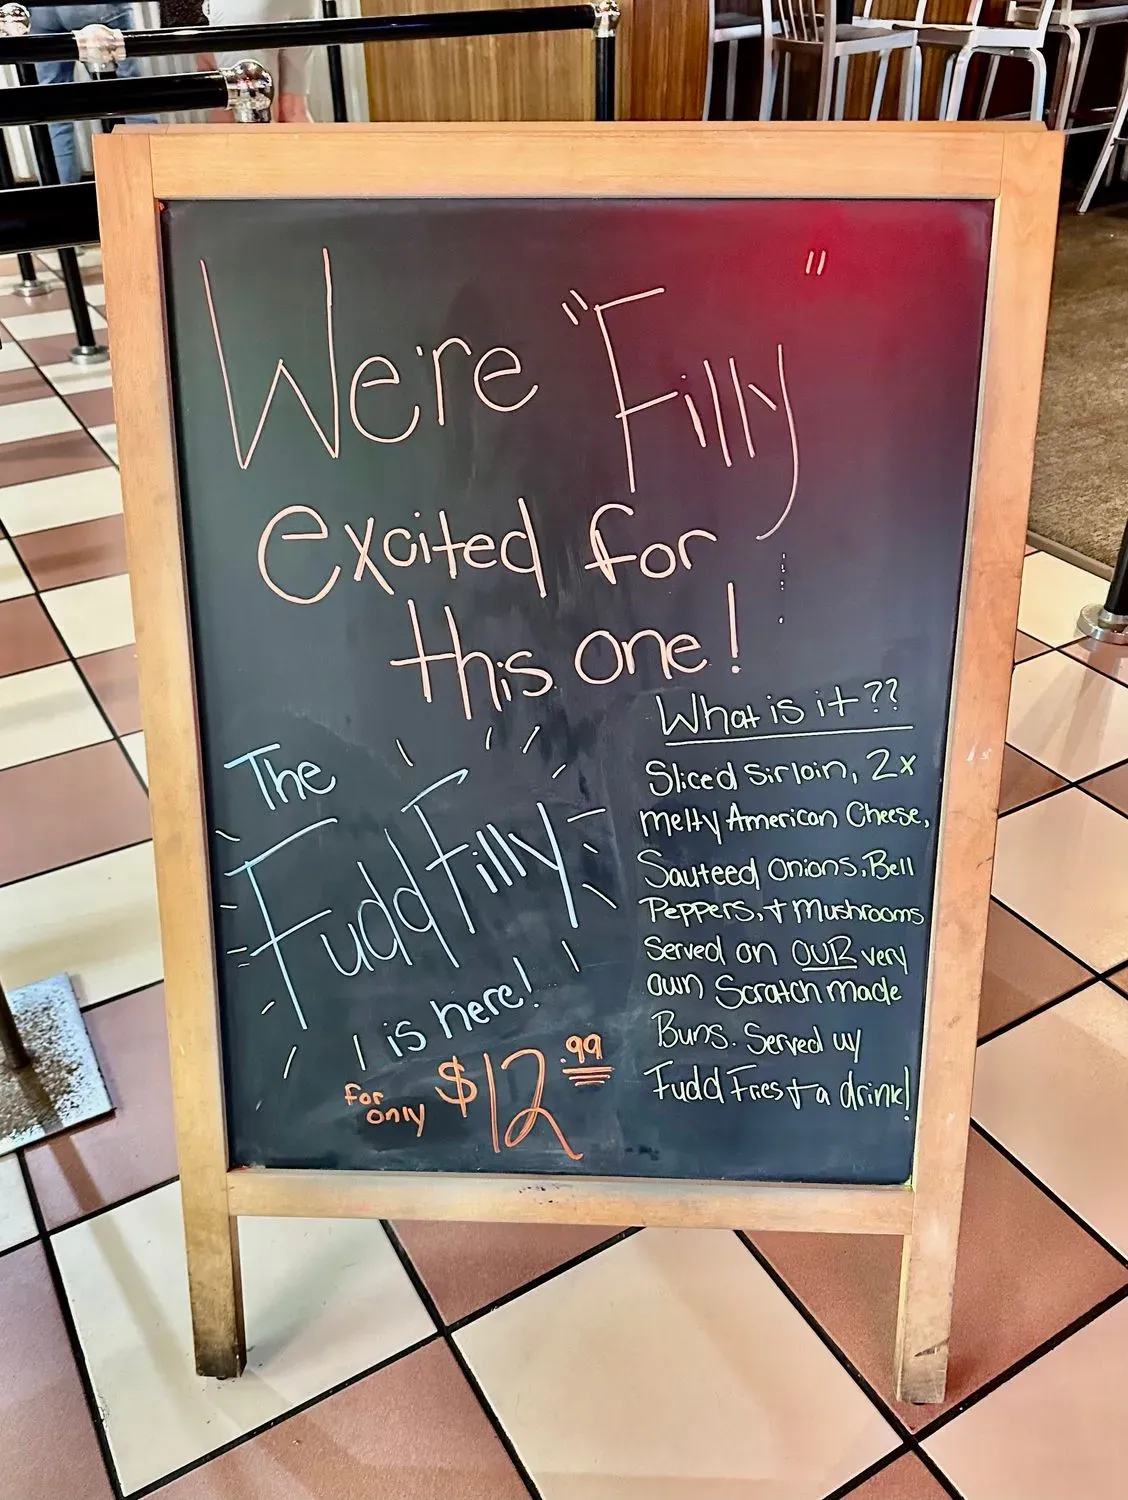 We're "Filly"
excited for
this one!
The
Fudd Filly
is here!
for only $12.99
What is it??
Sliced sirloin, 2x
melty American Cheese,
Sauteed onions, Bell
Peppers, + Mushrooms
Served on OUR very
own Scratch made
Buns. Served w/
Fudd Fries + a drink!